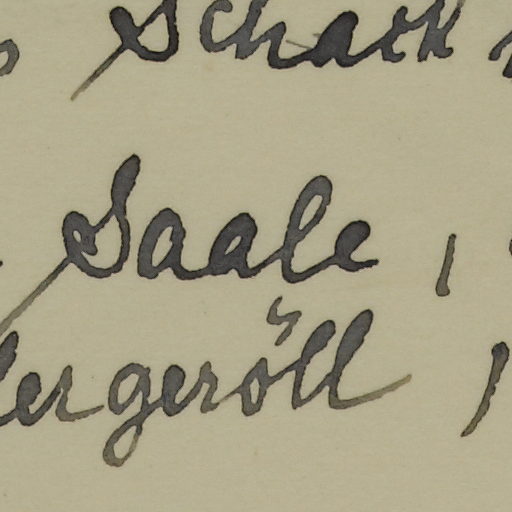 Schack
Saale,
lergeröll,